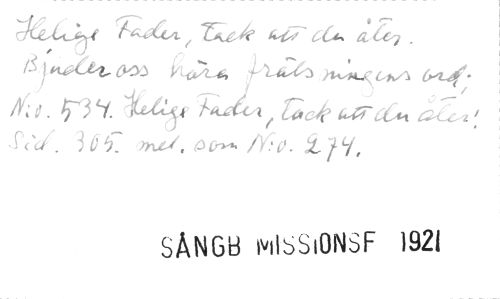 Helige Fader, tack att du åter.
Bjuder oss höra frälsningens ord;
N:o. 534. Helige Fader, tack att du åter!
Sid. 305. mel. som N:o. 274.
SÅNGB MISSIONSF 1921